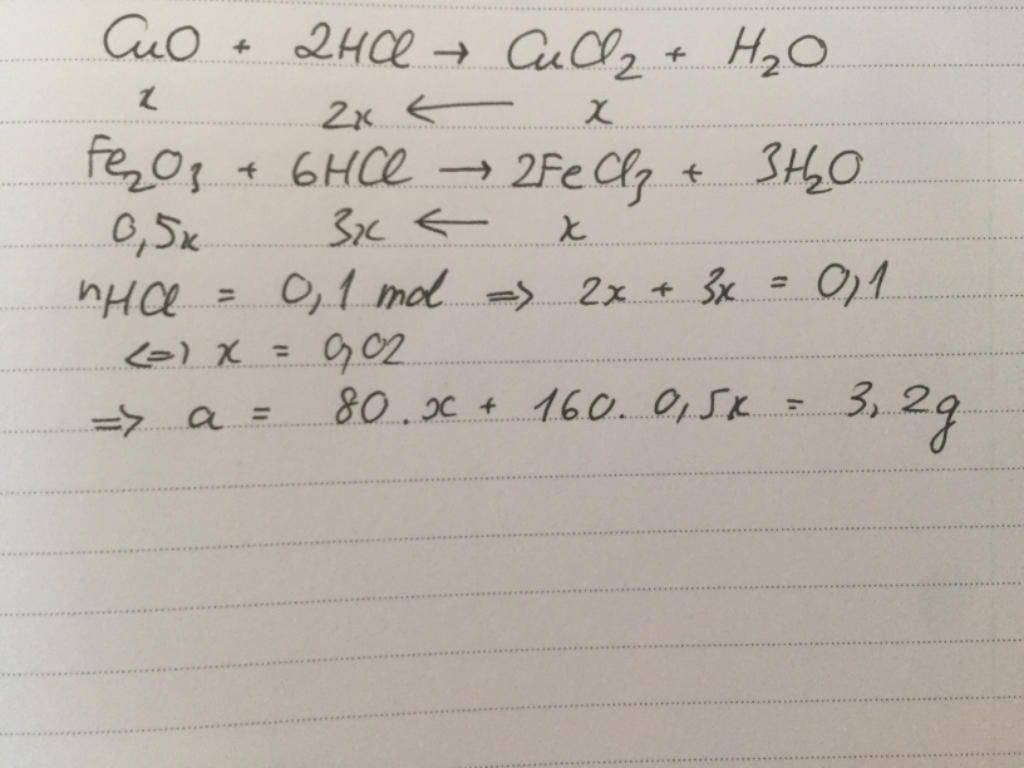 CuO + 2HCl → CuCl₂ + H₂O
x 2x ← x
Fe₂O₃ + 6HCl → 2FeCl₃ + 3H₂O
0,5x 3x ← x
nHCl = 0,1 mol => 2x + 3x = 0,1
<=> x = 0,02
=> a = 80.x + 160.0,5x = 3,2g